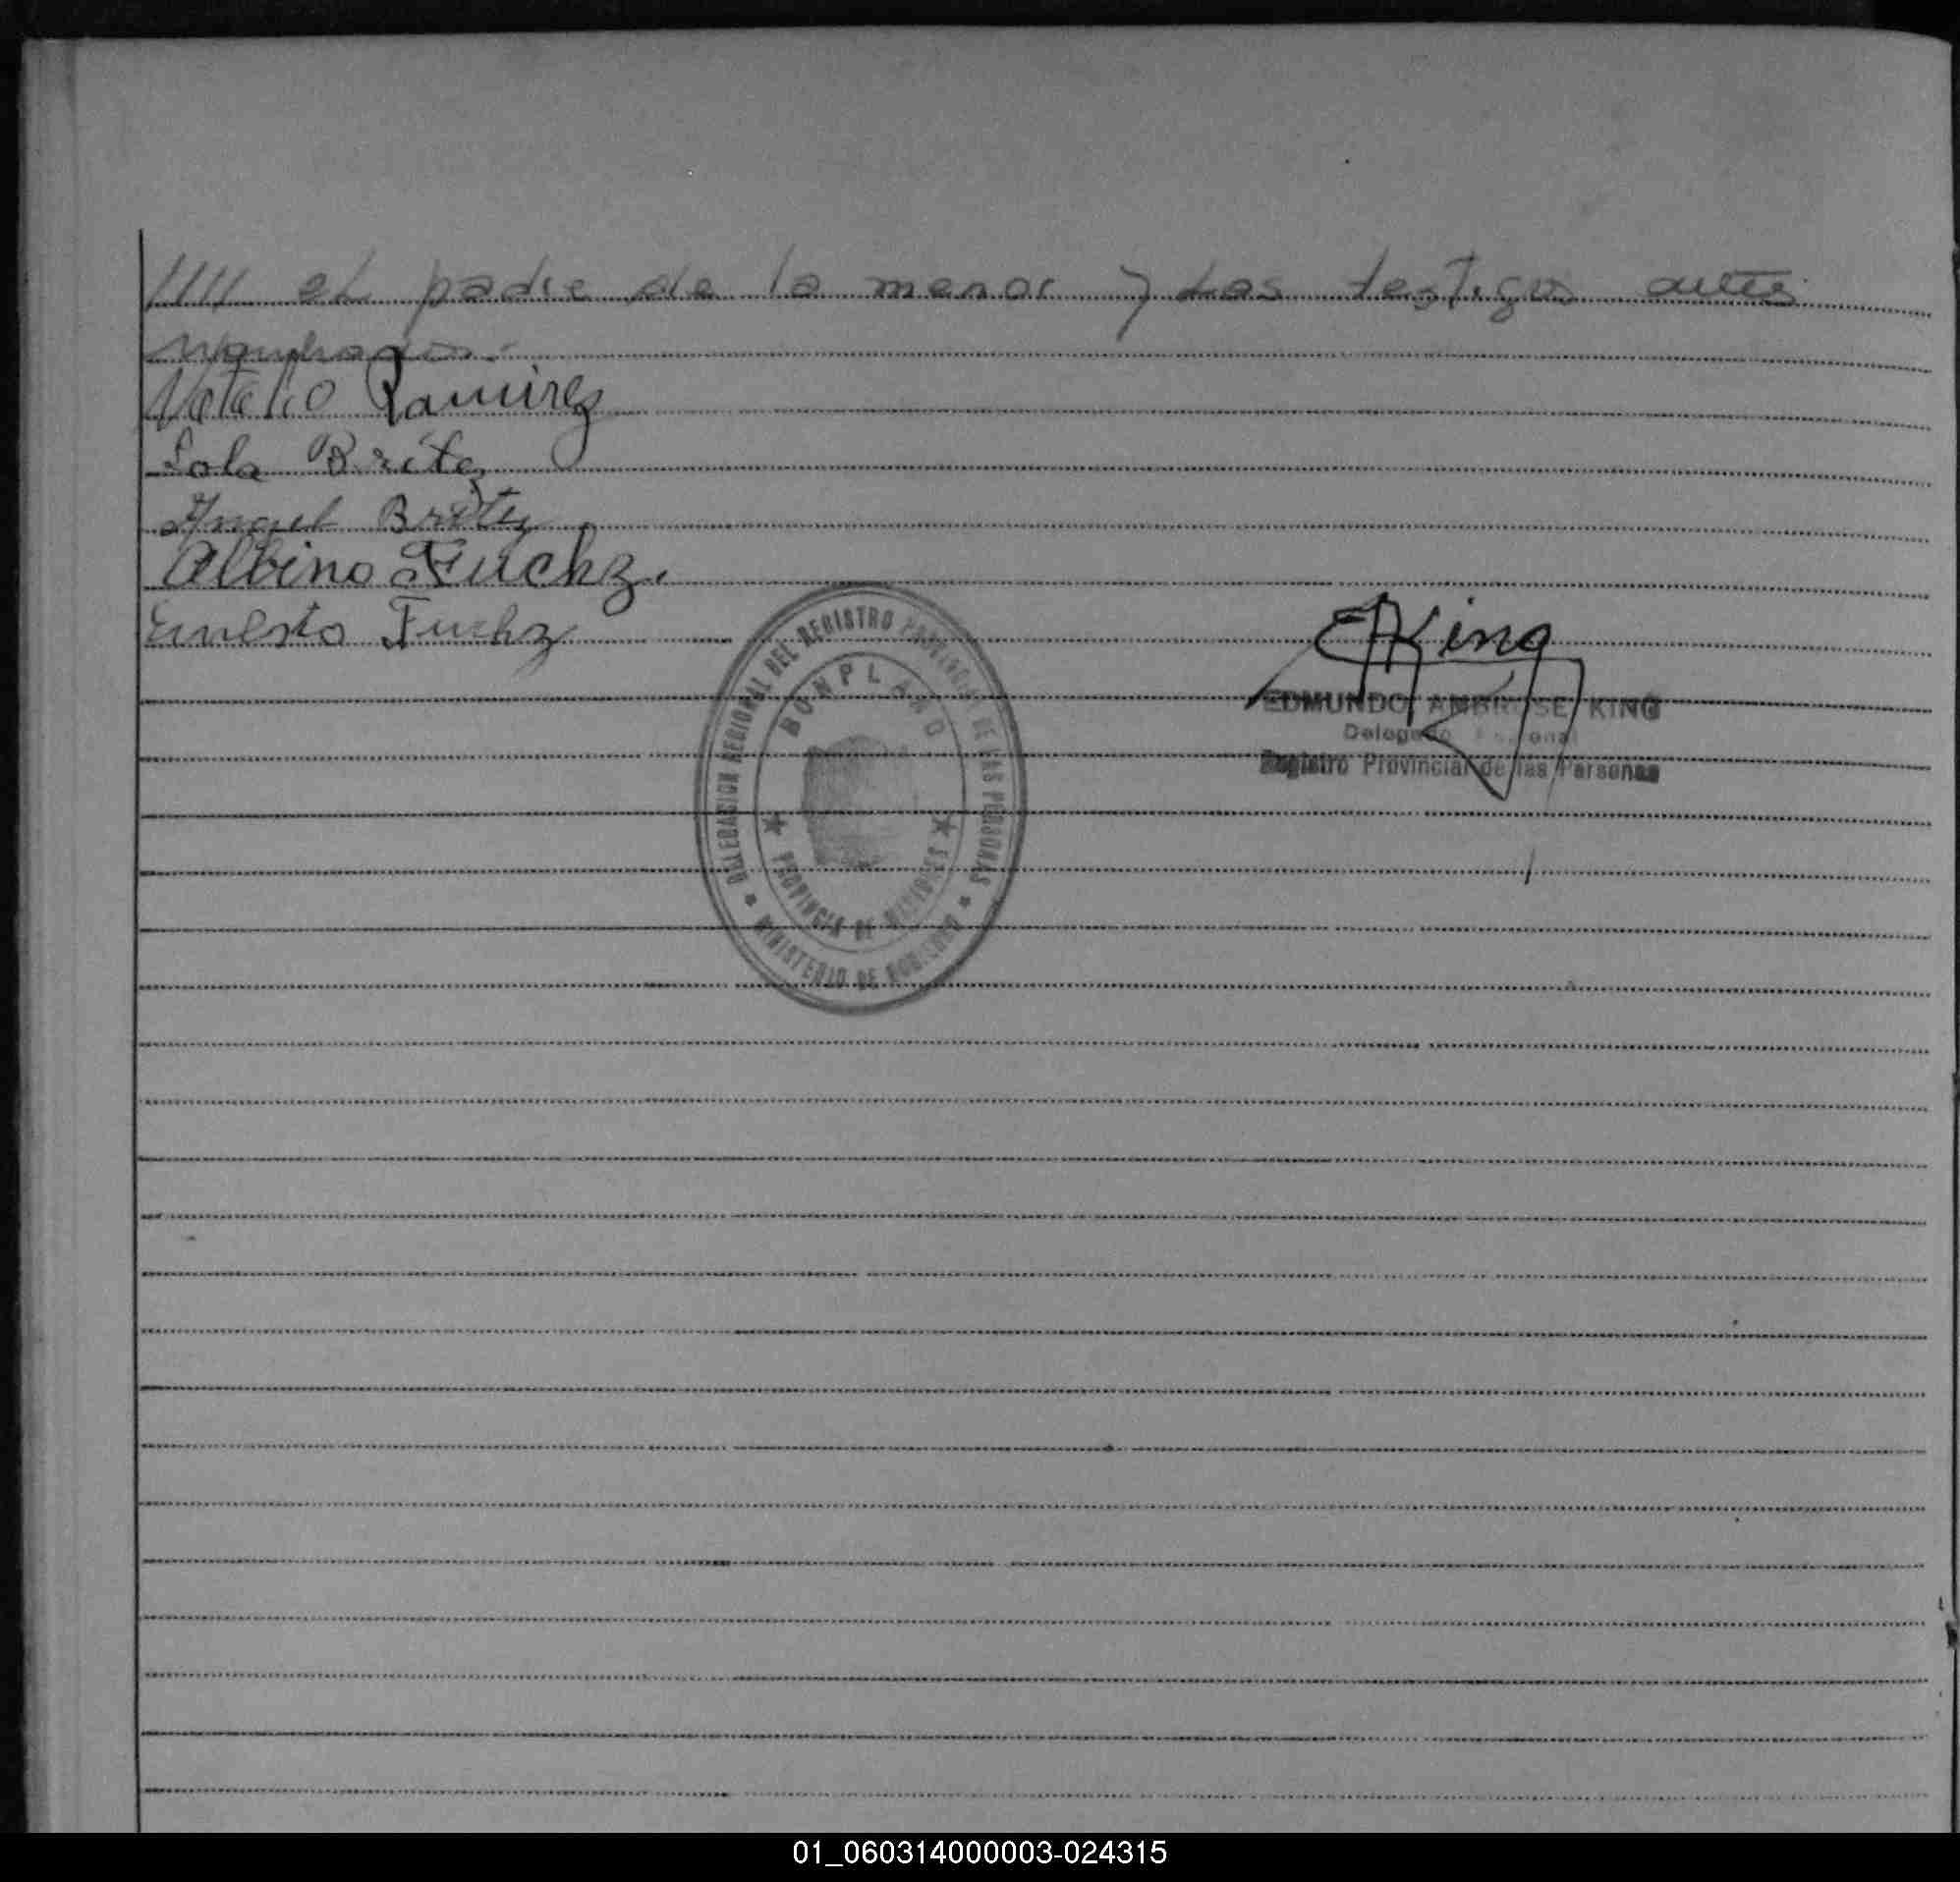 //// el padre de la menor y los testigos antes
nombrados.-
Natalio Ramirez
Lola Britez
Angel Britez
Albino Fuchz.
Ernesto Fuchz
DELEGACION REGIONAL DEL REGISTRO PROVINCIAL DE LAS PERSONAS
BONPLAND
PROVINCIA DE MISIONES
MINISTERIO DE GOBIERNO
EKing
EDMUNDO AMBROSE KING
Delegado Regional
Registro Provincial de las Personas
01_060314000003-024315